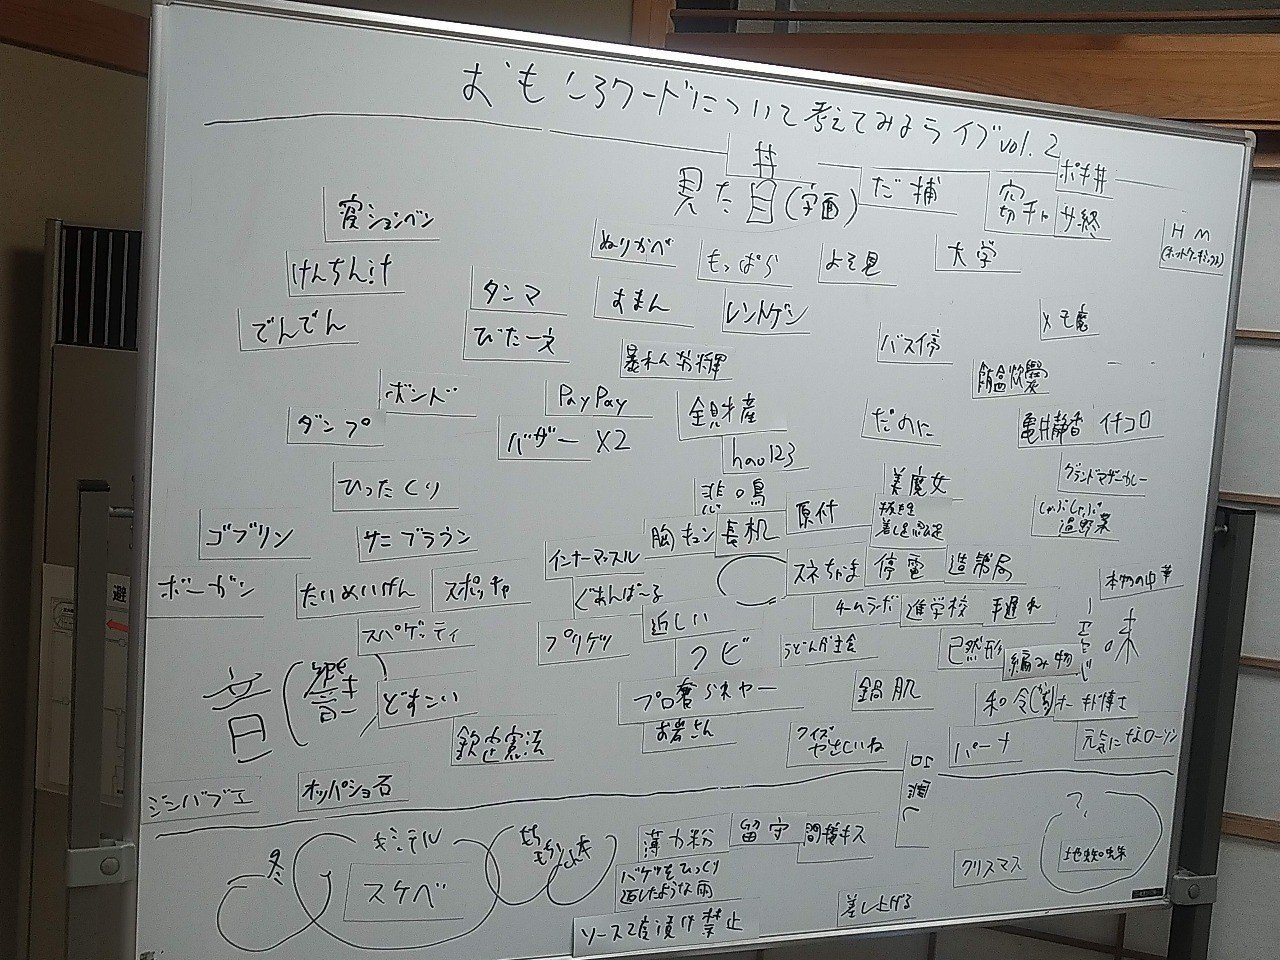 おもしろワードについて考えてみようライブvol.2
丼
見た目(字面)
だ捕
窃チャ
ポキ丼
サ終
HM
(ホットケーキミックス)
寝ションベン
ぬりかべ
もっぱら
よそ見
大学
けんちん汁
タンマ
すまん
レントゲン
メモ魔
でんでん
びた一文
暴れん坊将軍
バス停
飯盒炊爨
ボンド
PayPay
全財産
だのに
亀井静香
イチコロ
ダンプ
バザー×2
hao123
ひったくり
悲鳴
美魔女
グランドマザーカレー
ゴブリン
サニブラウン
胸キュン
長机
原付
しゃぶしゃぶ
温野菜
ボーガン
たいめいけん
スポッチャ
インナーマッスル
ぐあんばーる
スネちゃま
停電
造幣局
本物の中華
スパゲッティ
プリケツ
近しい
チームラボ
進学校
手遅れ
クビ
うどんが主食
已然形
編み物
意味
音(響き)
どすこい
プロ奢られヤー
鍋肌
和令(製)
オー朴博士
欽定憲法
お岩さん
クイズ
やさしいね
パーナ
元気になローソン
ジンバブエ
オッパショ石
口頭
冬
キンテル
スケベ
もちもちの木
薄力粉
留守
間接キス
バケツをひっくり
返したような雨
クリスマス
?
地蜘蛛
差し上げる
ソース2度漬け禁止